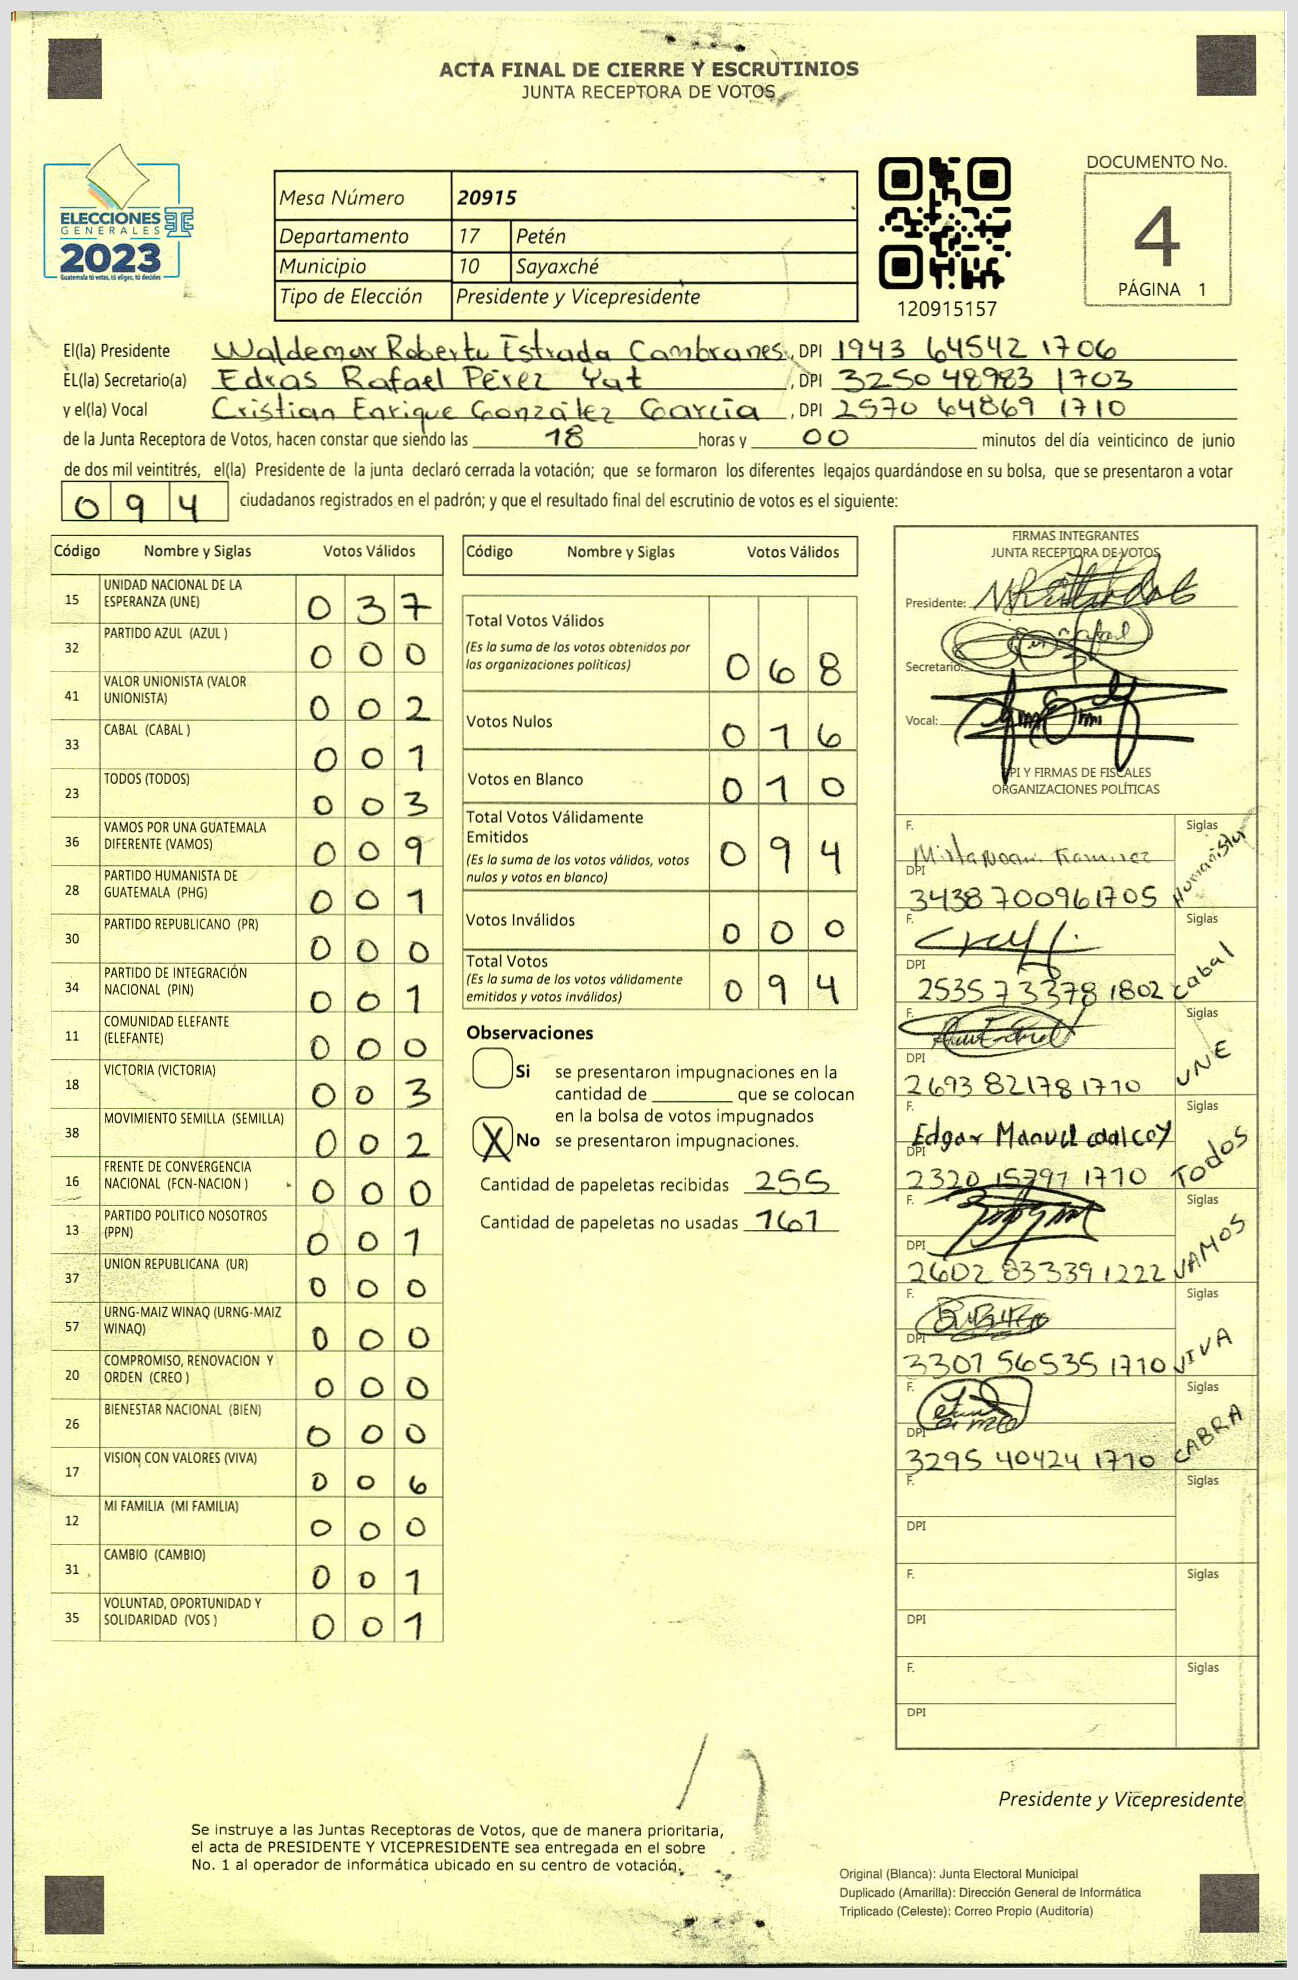 ACTA FINAL DE CIERRE Y ESCRUTINIOS
JUNTA RECEPTORA DE VOTOS
ELECCIONES
GENERALES
2023
Guatemala tú votas, tú eliges, tú decides
Mesa Número 20915
Departamento 17 Petén
Municipio 10 Sayaxché
Tipo de Elección Presidente y Vicepresidente
120915157
DOCUMENTO No.
4
PÁGINA 1
El(la) Presidente Waldemar Roberto Estrada Cambranes, DPI 1943 64542 1706
EL(la) Secretario(a) Edras Rafael Pérez Yat, DPI 3250 48983 1703
y el(la) Vocal Cristian Enrique González García, DPI 2570 64869 1710
de la Junta Receptora de Votos, hacen constar que siendo las 18 horas y 00 minutos del día veinticinco de junio
de dos mil veintitrés, el(la) Presidente de la junta declaró cerrada la votación; que se formaron los diferentes legajos guardándose en su bolsa, que se presentaron a votar
094 ciudadanos registrados en el padrón; y que el resultado final del escrutinio de votos es el siguiente:
Código Nombre y Siglas Votos Válidos
15 UNIDAD NACIONAL DE LA ESPERANZA (UNE) 037
32 PARTIDO AZUL (AZUL ) 000
41 VALOR UNIONISTA (VALOR UNIONISTA) 002
33 CABAL (CABAL ) 001
23 TODOS (TODOS) 003
36 VAMOS POR UNA GUATEMALA DIFERENTE (VAMOS) 009
28 PARTIDO HUMANISTA DE GUATEMALA (PHG) 001
30 PARTIDO REPUBLICANO (PR) 000
34 PARTIDO DE INTEGRACIÓN NACIONAL (PIN) 001
11 COMUNIDAD ELEFANTE (ELEFANTE) 000
18 VICTORIA (VICTORIA) 003
38 MOVIMIENTO SEMILLA (SEMILLA) 002
16 FRENTE DE CONVERGENCIA NACIONAL (FCN-NACION ) 000
13 PARTIDO POLITICO NOSOTROS (PPN) 001
37 UNION REPUBLICANA (UR) 000
57 URNG-MAIZ WINAQ (URNG-MAIZ WINAQ) 000
20 COMPROMISO, RENOVACION Y ORDEN (CREO ) 000
26 BIENESTAR NACIONAL (BIEN) 000
17 VISION CON VALORES (VIVA) 006
12 MI FAMILIA (MI FAMILIA) 000
31 CAMBIO (CAMBIO) 001
35 VOLUNTAD, OPORTUNIDAD Y SOLIDARIDAD (VOS ) 001
Código Nombre y Siglas Votos Válidos
Total Votos Válidos 068
(Es la suma de los votos obtenidos por
las organizaciones políticas)
Votos Nulos 016
Votos en Blanco 010
Total Votos Válidamente
Emitidos 094
(Es la suma de los votos válidos, votos
nulos y votos en blanco)
Votos Inválidos 000
Total Votos 094
(Es la suma de los votos válidamente
emitidos y votos inválidos)
Observaciones
Si se presentaron impugnaciones en la
cantidad de ________ que se colocan
en la bolsa de votos impugnados
X No se presentaron impugnaciones.
Cantidad de papeletas recibidas 255
Cantidad de papeletas no usadas 161
FIRMAS INTEGRANTES
JUNTA RECEPTORA DE VOTOS
Presidente:
Secretario:
Vocal:
DPI Y FIRMAS DE FISCALES
ORGANIZACIONES POLÍTICAS
F. Siglas
DPI 3438 70096 1705 Humanista
F. Siglas
DPI 2535 73378 1802 Cabal
F. Siglas
DPI 2693 82178 1710 UNE
F. Edgar Manuel Siglas
DPI 2320 15797 1710 TODOS
F. Siglas
DPI 2602 83339 1222 VAMOS
F. Siglas
DPI 3301 56535 1710 VIVA
F. Siglas
DPI 3295 40424 1710 CABRA
F. Siglas
DPI
F. Siglas
DPI
F. Siglas
DPI
Presidente y Vicepresidente
Se instruye a las Juntas Receptoras de Votos, que de manera prioritaria,
el acta de PRESIDENTE Y VICEPRESIDENTE sea entregada en el sobre
No. 1 al operador de informática ubicado en su centro de votación.
Original (Blanca): Junta Electoral Municipal
Duplicado (Amarilla): Dirección General de Informática
Triplicado (Celeste): Correo Propio (Auditoría)